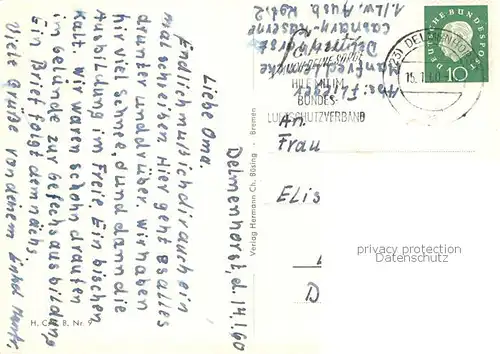 Delmenhorst, d. 14.1.60
Liebe Oma.
Endlich muß ich dir auch ein
mal schreiben. Hier geht es alles
drunter und drüber. Wir haben
hier viel Schnee und dann die
Ausbildung im Freie. Ein bischen
kalt. Wir waren schon draußen
im Gelände zur Gefechsausbildung
Ein Brief folgt demnächs.
Viele Grüße von deinem Enkel
H. C. B. Nr. 9
Verlag Hermann Ch. Büsing · Bremen
Abs: Flieger
Manfred
Delmenhorst
Caspary-Kaserne
1/Lw. Ausb. Rgt. 2
HILF MIT IM
BUNDES-
LUFTSCHUTZVERBAND
(23) DELMENHORST
15.1.60
DEUTSCHE BUNDESPOST
10
An.
Frau
Elis
D
privacy protection
Datenschutz